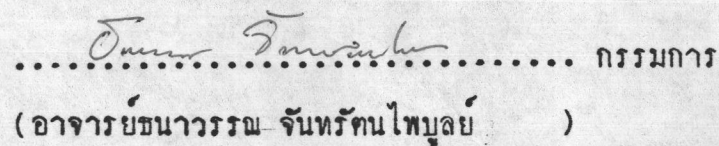 .................................. กรรมการ
(อาจารย์ธนาวรรณ จันทรัตนไพบูลย์ )